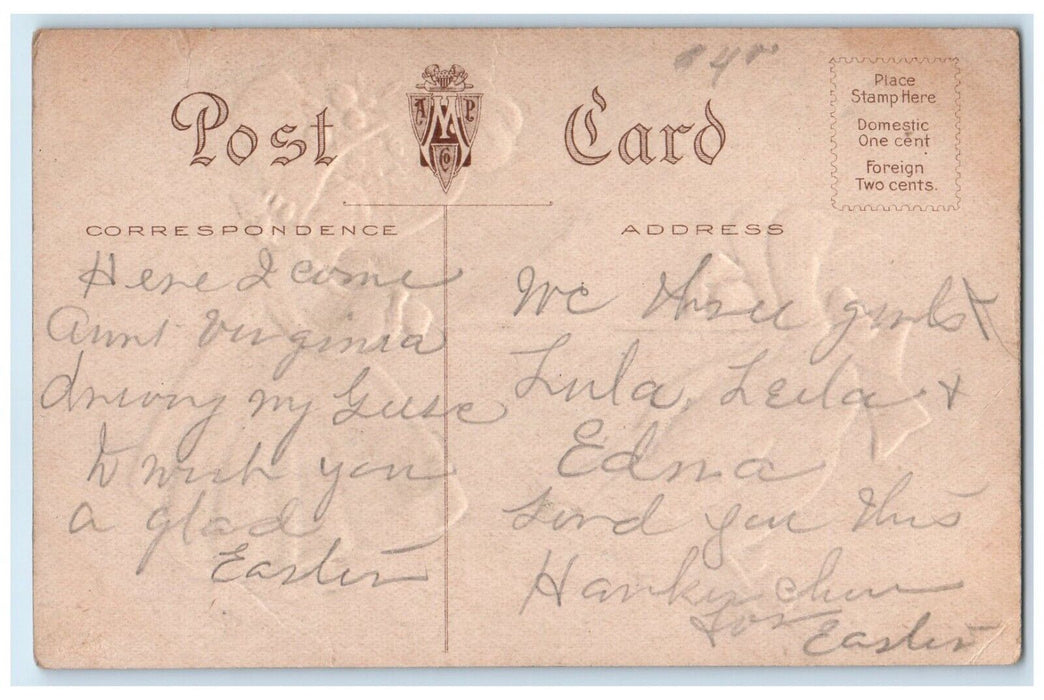 Post Card
A M P Co
Place
Stamp Here
Domestic
One cent
Foreign
Two cents.
CORRESPONDENCE
Here I come
Aunt Virginia
driving my Geese
to wish you
a glad
Easter
ADDRESS
We three girls
Lula, Leila +
Edna
send you this
Hankerchew
for Easter